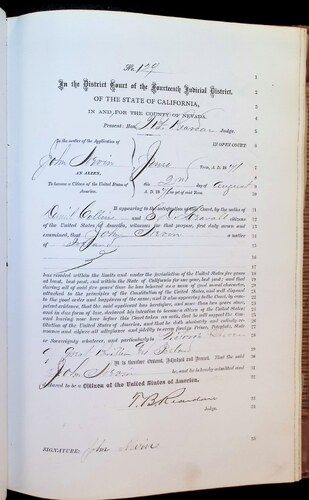 No. 129
In the District Court of the Fourteenth Judicial District,
OF THE STATE OF CALIFORNIA,
IN AND FOR THE COUNTY OF NEVADA.
Present: Hon. T. B. Reardan Judge.
In the matter of the Application of
IN OPEN COURT
John Irwin
AN ALIEN,
To become a Citizen of the United States of America.
Term, A. D. 18
day of August
A. D. 18
It appearing to the satisfaction of this Court, by the oaths of
Collins and citizens
of the United States of America, witnesses for that purpose, first duly sworn and
examined, that John Irwin a native
of Ireland
has resided within the limits and under the jurisdiction of the United States five years
at least, last past, and within the State of California for one year, last past; and that
during all of said five years' time he has behaved as a man of good moral character,
attached to the principles of the Constitution of the United States, and well disposed
to the good order and happiness of the same; and it also appearing to the Court, by com-
petent evidence, that the said applicant has heretofore, and more than two years since,
and in due form of law, declared his intention to become a citizen of the United States;
and having now here before this Court taken an oath, that he will support the Consti-
tution of the United States of America, and that he doth absolutely and entirely re-
nounce and abjure all allegiance and fidelity to every foreign Prince, Potentate, State
or Sovereignty whatever, and particularly to Victoria Queen
of Great Britain and Ireland
It is therefore Ordered, Adjudged and Decreed, That the said
John Irwin be, and he is hereby admitted and
declared to be a Citizen of the United States of America.
T. B. Reardan
Judge.
SIGNATURE: John Irwin